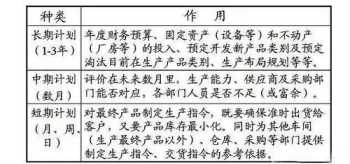 种类 作 用
长期计划
(1-3年)
年度财务预算、固定资产(设备等)和不动产
(厂房等)的投入、预定开发新产品类别及预定
淘汰目前在生产产品类别、生产布局规划等等。
中期计划
(数月)
评价在未来数月里，生产能力、供应商及采购部
门能否对应，各部门人员是否不足(或富余)。
短期计划
(月、周、
日)
对最终产品制定生产指令，既要确保准时出货给
客户，又要产品库存最小化。同时为其他车间
(生产最终产品以外)、仓库、采购等部门提供
制定生产指令、交货指令的参考依据。